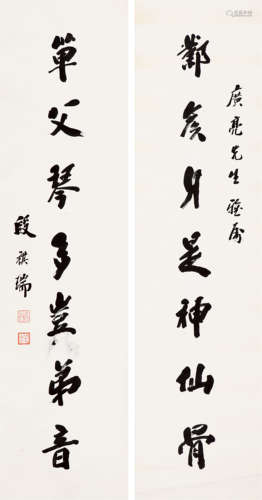 廣亮先生雅屬
鄴矦身是神仙骨
單父琴多豈弟音
段祺瑞